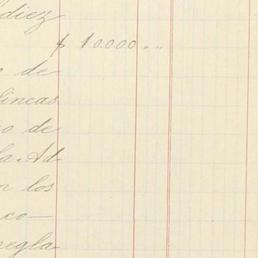 diez
$ 10.000..
de
lineas
o de
la Ad
n los
co-
regla